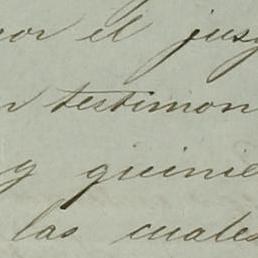 por el juzg
n testimon
y quinie
las cuales